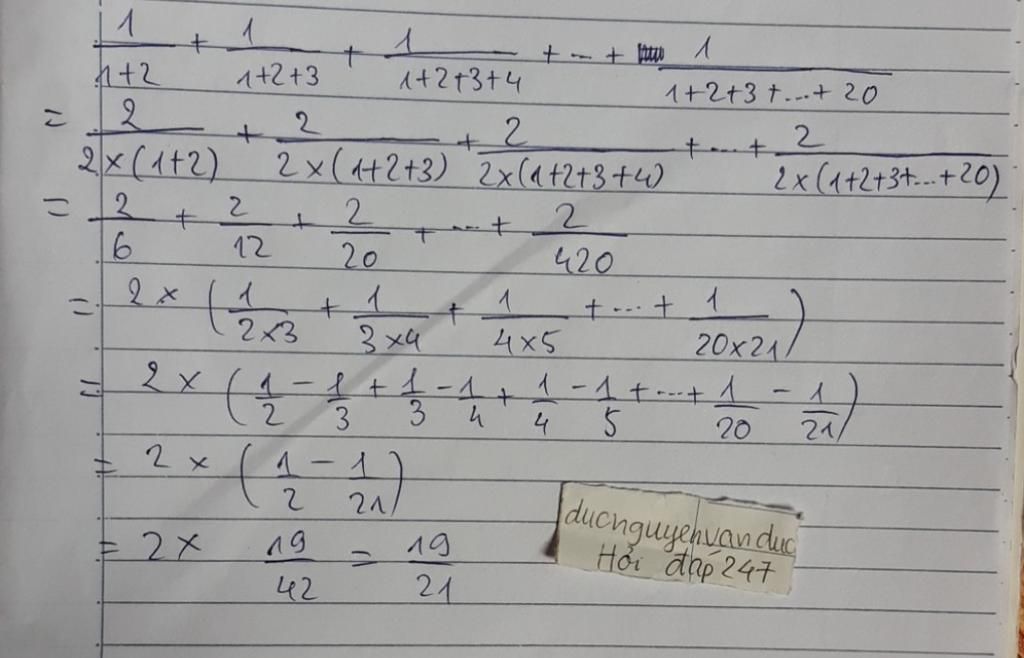 1/(1+2) + 1/(1+2+3) + 1/(1+2+3+4) + ... + 1/(1+2+3+...+20)
= 2/(2×(1+2)) + 2/(2×(1+2+3)) + 2/(2×(1+2+3+4)) + ... + 2/(2×(1+2+3+...+20))
= 2/6 + 2/12 + 2/20 + ... + 2/420
= 2 × (1/(2×3) + 1/(3×4) + 1/(4×5) + ... + 1/(20×21))
= 2 × (1/2 - 1/3 + 1/3 - 1/4 + 1/4 - 1/5 + ... + 1/20 - 1/21)
= 2 × (1/2 - 1/21)
= 2 × 19/42 = 19/21
ducnguyenvanduc
Hỏi đáp 247